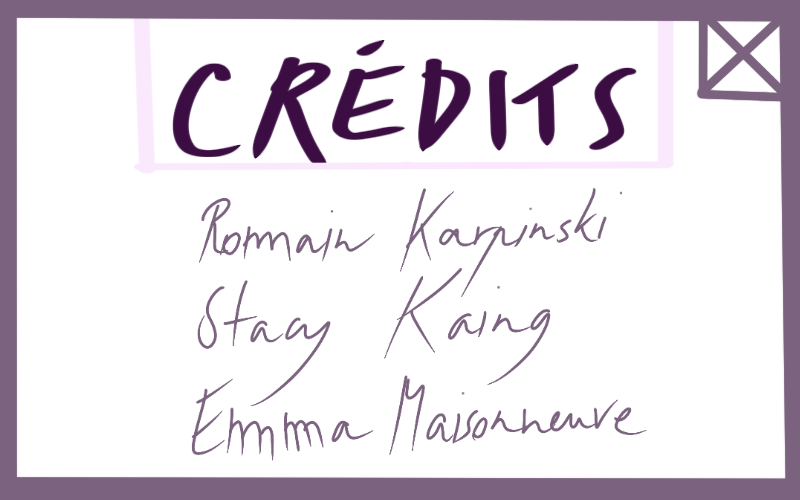 CRÉDITS
Romain Karpinski
Stacy Kaing
Emma Maisonneuve